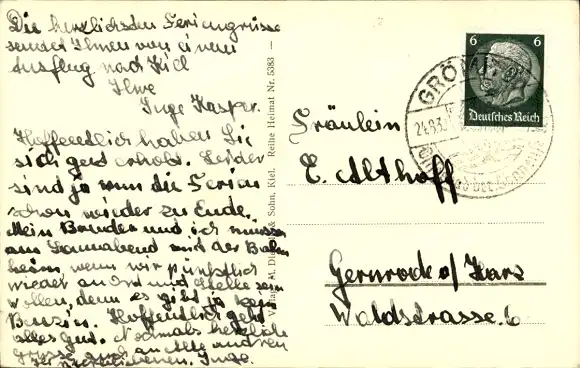 Die herzlichsten Feriengrüsse
sendet Ihnen von einem
Ausflug nach Kiel
Ihre
Inge Kasper.
Hoffendlich haben Sie
sich gut erholt. Leider
sind ja nun die Ferien
schon wieder zu Ende.
Mein Bruder und ich müssen
am Sonnabend mit der Bahn
heim, wenn wir pünktlich
wieder an Ort und Stelle sein
wollen, denn es gibt ja kein
Benzin. Hoffendlich geht
alles gut. Nochmals herzliche
Grüsse auch an alle anderen
Inge.
Verlag M. & Sohn, Kiel. Reihe Heimat Nr. 5383
6 6
Deutsches Reich
GRÖMITZ
Fräulein
E. Althoff
Gernrode o/ Harz
Waldstrasse 6